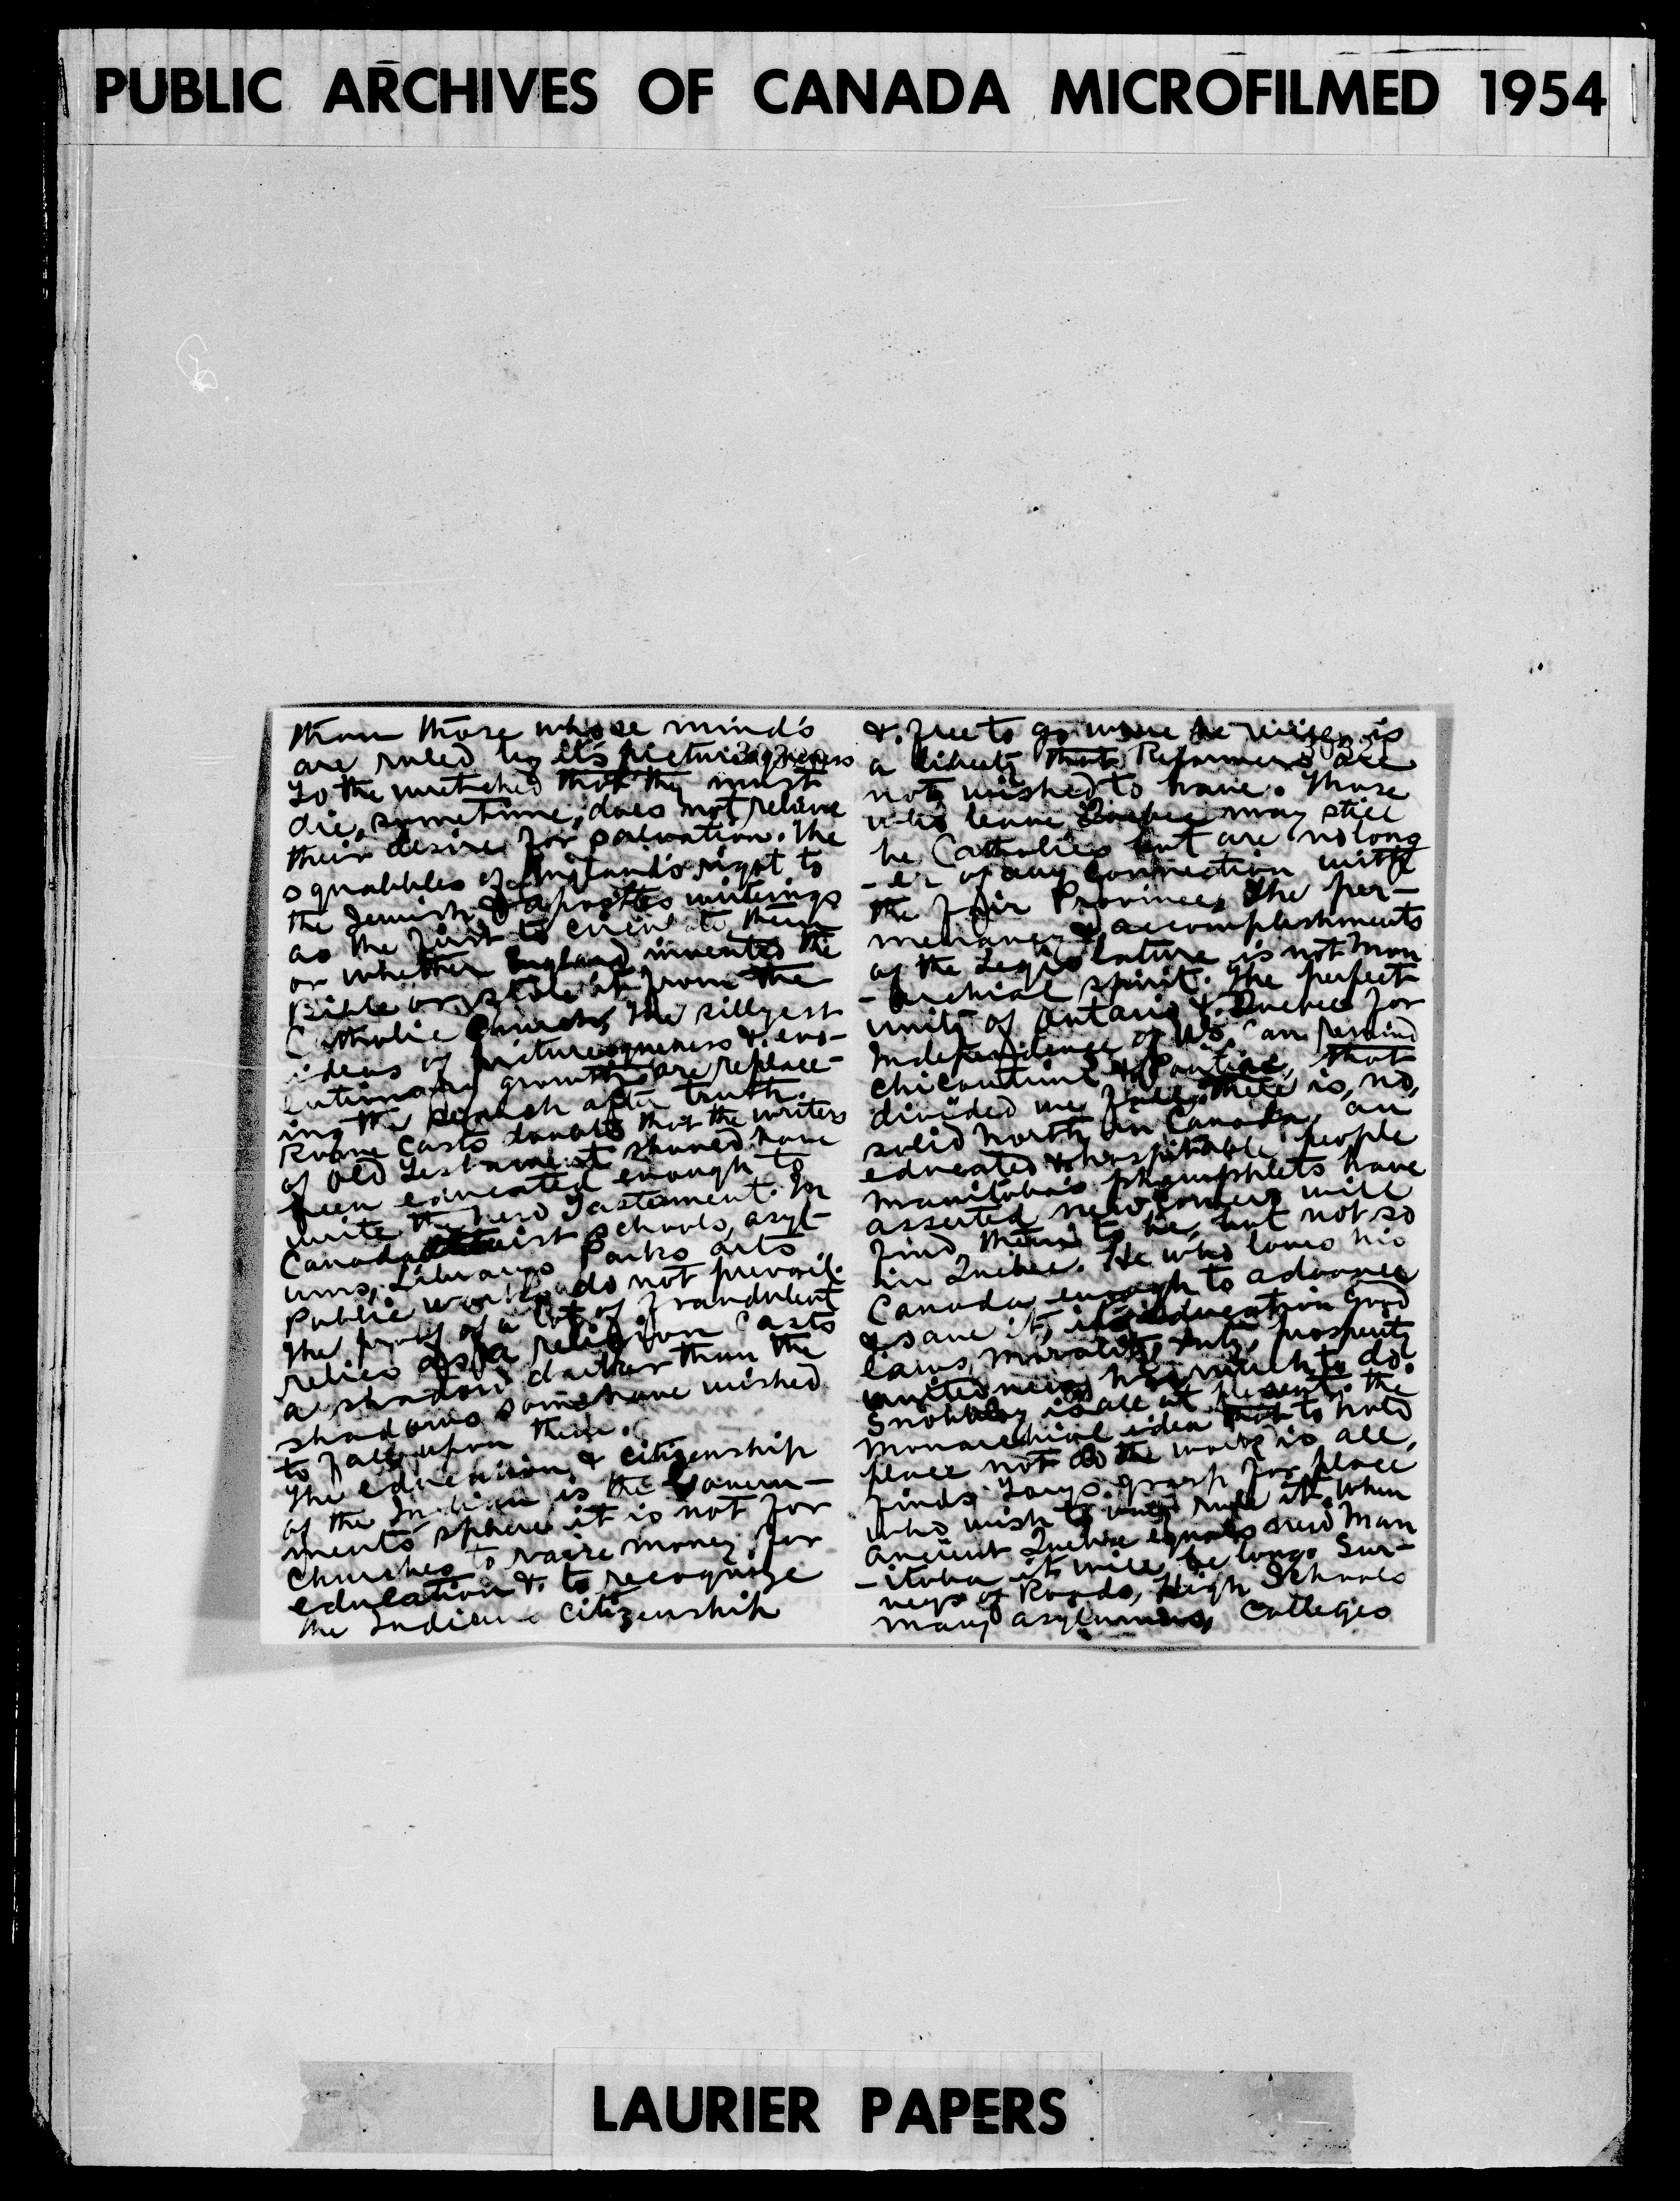 PUBLIC ARCHIVES OF CANADA MICROFILMED 1954
than those whose mind's
are ruled by it's picturesqueness
To the wretched that they must
die, sometime, does not relieve
their desire for salvation. The
squabbles of England's right to
the Jewish & apostles writings
as the first to circulate them
or whether England invented the
Bible or stole it from the
Catholic Church, the sillyest
ideas of picturesqueness & evo-
lutionary growth are replace-
ing the search after truth.
Rome casts doubts that the writers
of Old Testament should have
been educated enough to
write the New Testament. In
Canada schools, asyl-
ums, Librarys Parks arts
Public works do not prevail.
The proof of a lot of fraudulent
relics as a religion casts
a shadow darker than the
shadows some have wished
to fall upon them.
The education & citizenship
of the Indian is the Govern-
ments sphere it is not for
Churches to raise money for
education & to recognize
the Indians citizenship
& free to go where he is
a liberty that Reformers are
not wished to have. Those
who leave Quebec may still
be Catholics but are no long
-er of any connection with
the fair Province, the per-
menancy & accomplishments
of the Legislature is not Mon
-archial spirit. The perfect
unity of Ontario & Quebec for
Independence of U.S. can remind
Chicoutimi & Pontiac, that
divided we fall. There is, no,
solid North in Canada, an
educated & hospitable people
Manitoba's phamphlets have
asserted newcomers will
find, them to be, but not so
in Quebec. He who loves his
Canada enough to advance
& save it, its education good
laws, morality, duty, prosperity
unitedness has much to do.
Snobbery is all at present. the
monarchial idea that to hold
place not do the work is all,
finds Torys grasp for place
who wish to rule it. When
ancient Quebec equals new Man
-itoba it will be long. Sur-
veys of Roads, High Schools
many asylumns, Colleges
LAURIER PAPERS